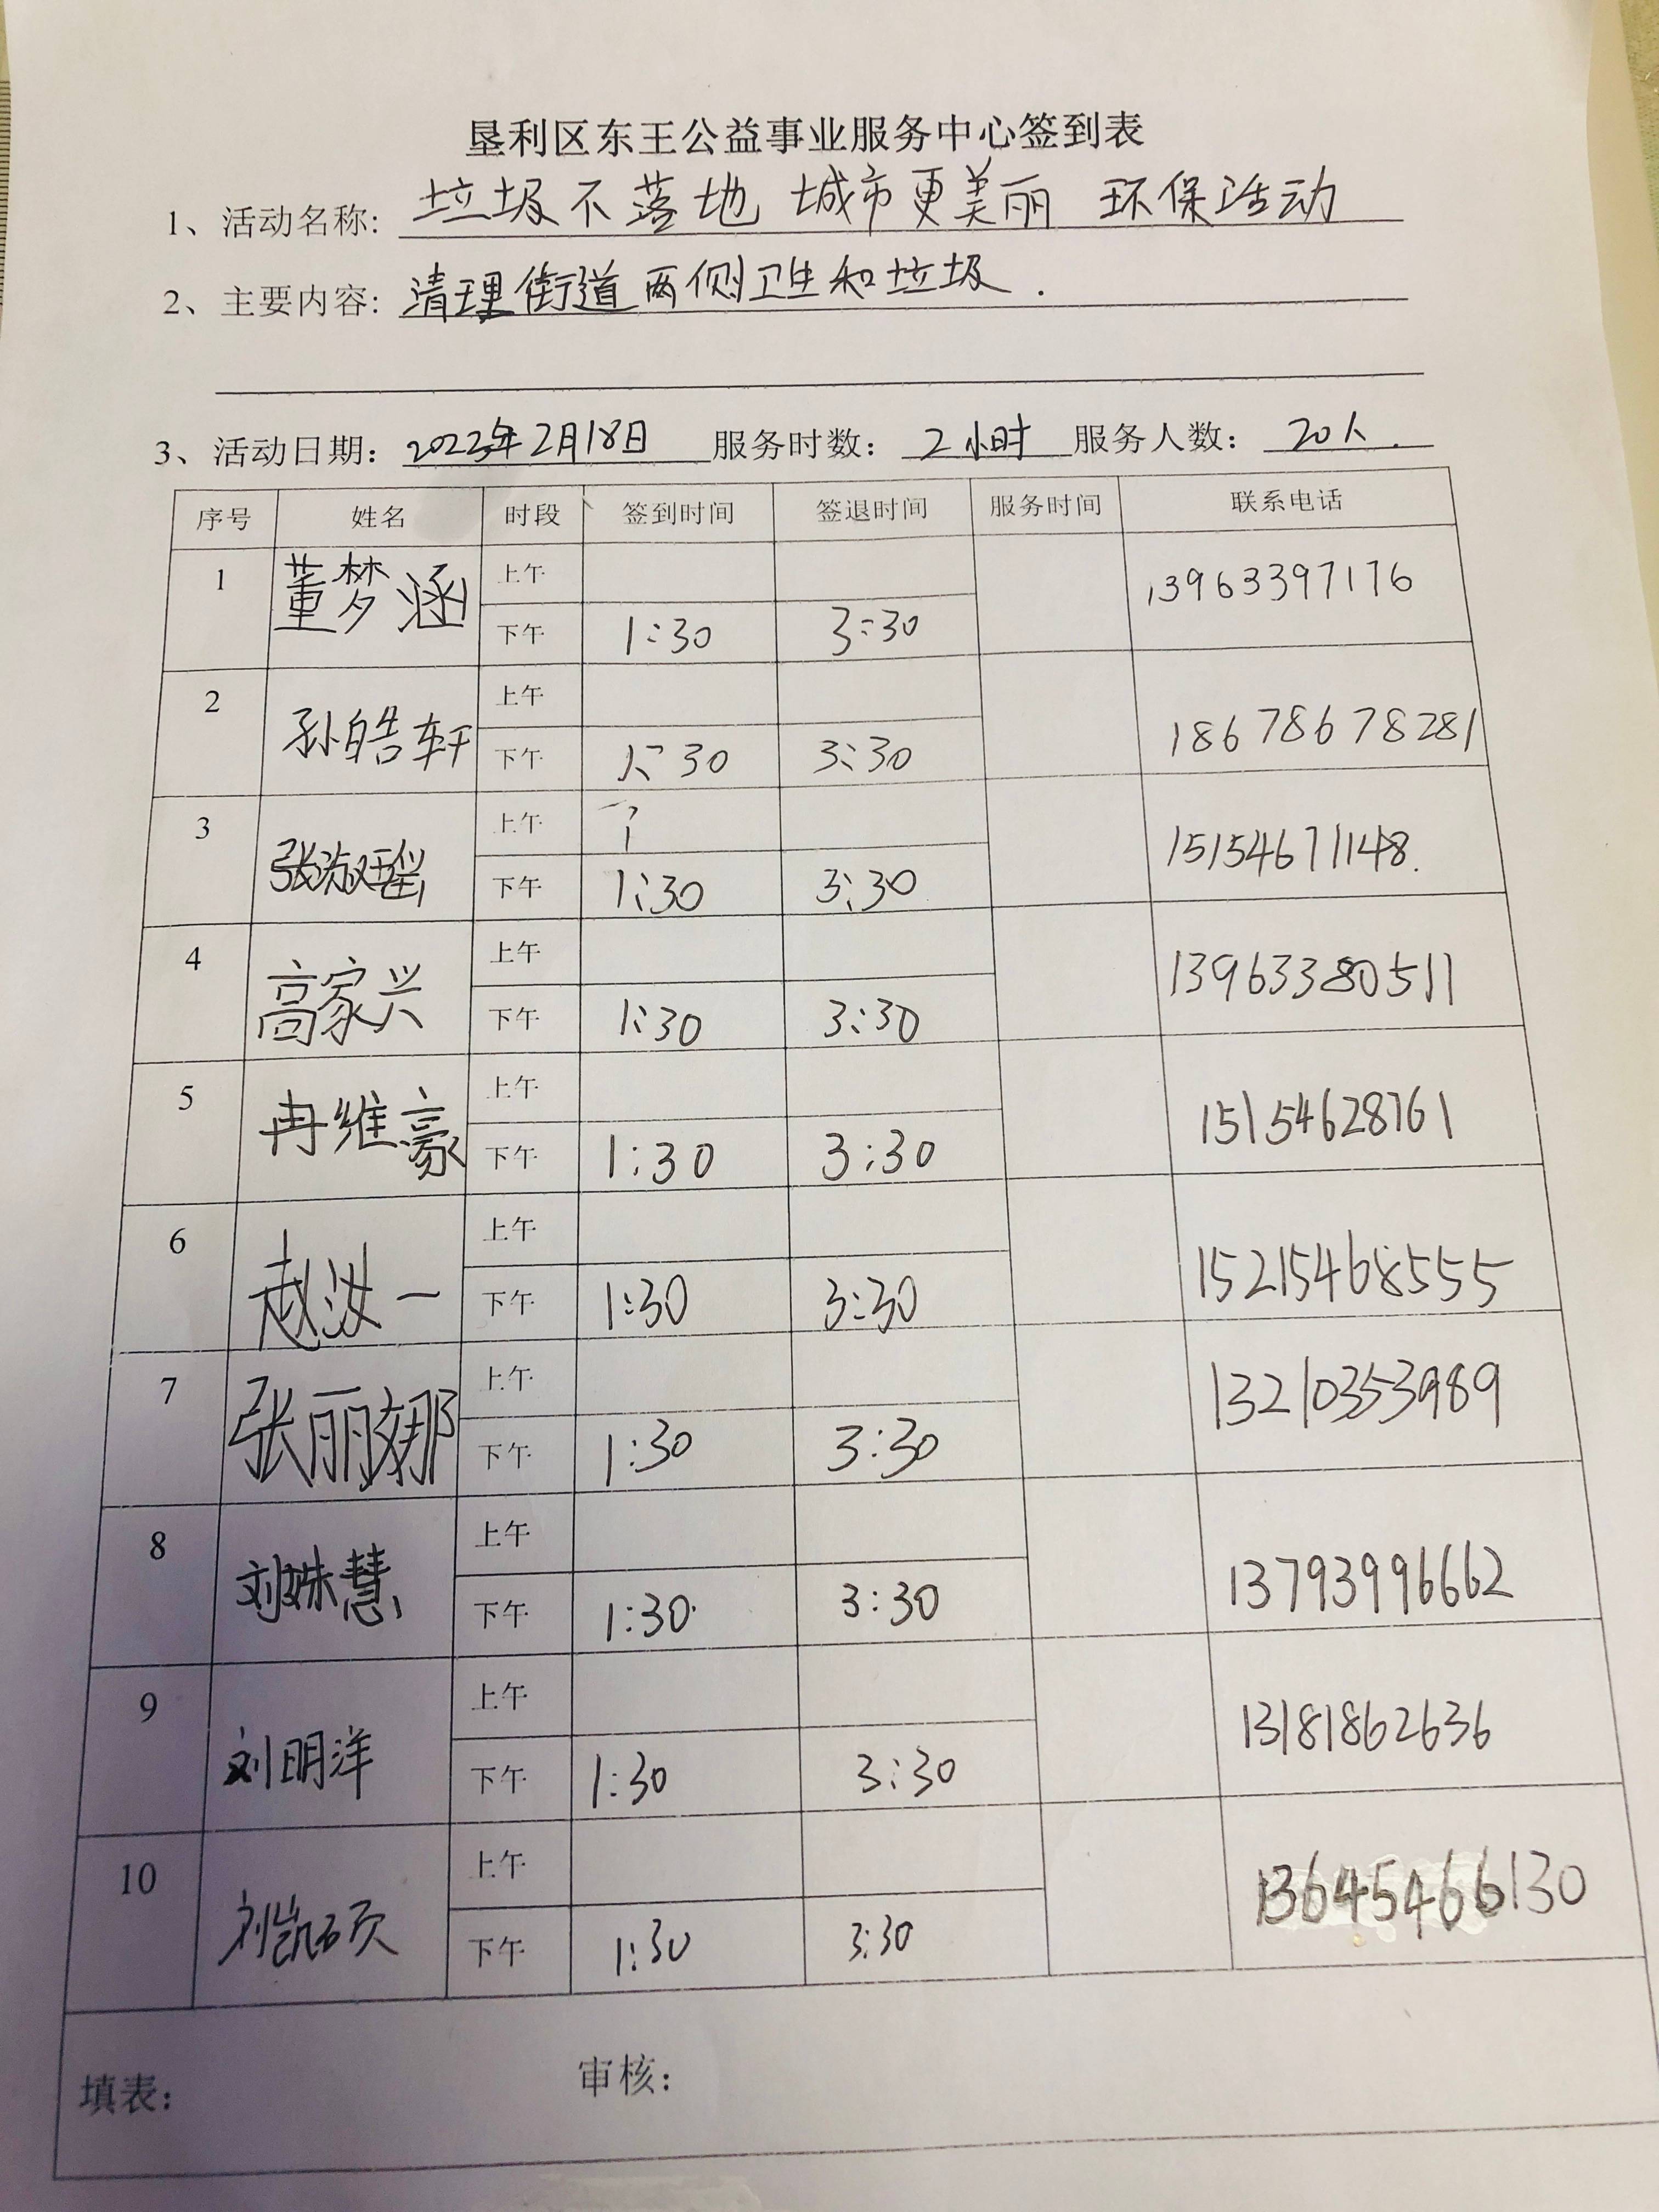 垦利区东王公益事业服务中心签到表
1、活动名称: 垃圾不落地 城市更美丽 环保活动
2、主要内容: 清理街道两侧卫生和垃圾.
3、活动日期: 2023年2月18日 服务时数: 2小时 服务人数: 20人.
序号 姓名 时段 签到时间 签退时间 服务时间 联系电话
1 董梦涵 上午 13963397176
下午 1:30 3:30
2 孙皓轩 上午 18678678281
下午 1:30 3:30
3 张淑瑶 上午 15154671148.
下午 1:30 3:30
4 高家兴 上午 13963380511
下午 1:30 3:30
5 冉维豪 上午 15154628761
下午 1:30 3:30
6 赵汝一 上午 15215468555
下午 1:30 3:30
7 张丽娜 上午 13210353989
下午 1:30 3:30
8 刘姝慧 上午 13793996662
下午 1:30 3:30
9 刘明洋 上午 13181862636
下午 1:30 3:30
10 刘凯硕 上午 13645466130
下午 1:30 3:30
填表: 审核: